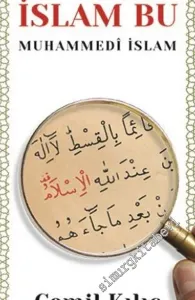 İSLAM BU
MUHAMMEDÎ İSLAM
قَائِمًا بِالْقِسْطِ لَا إِلَٰهَ
عِنْدَ اللَّهِ الْإِسْلَامُ
بَعْدِ مَا جَاءَهُمُ
simurgkitabevi
Cemil Kılıç